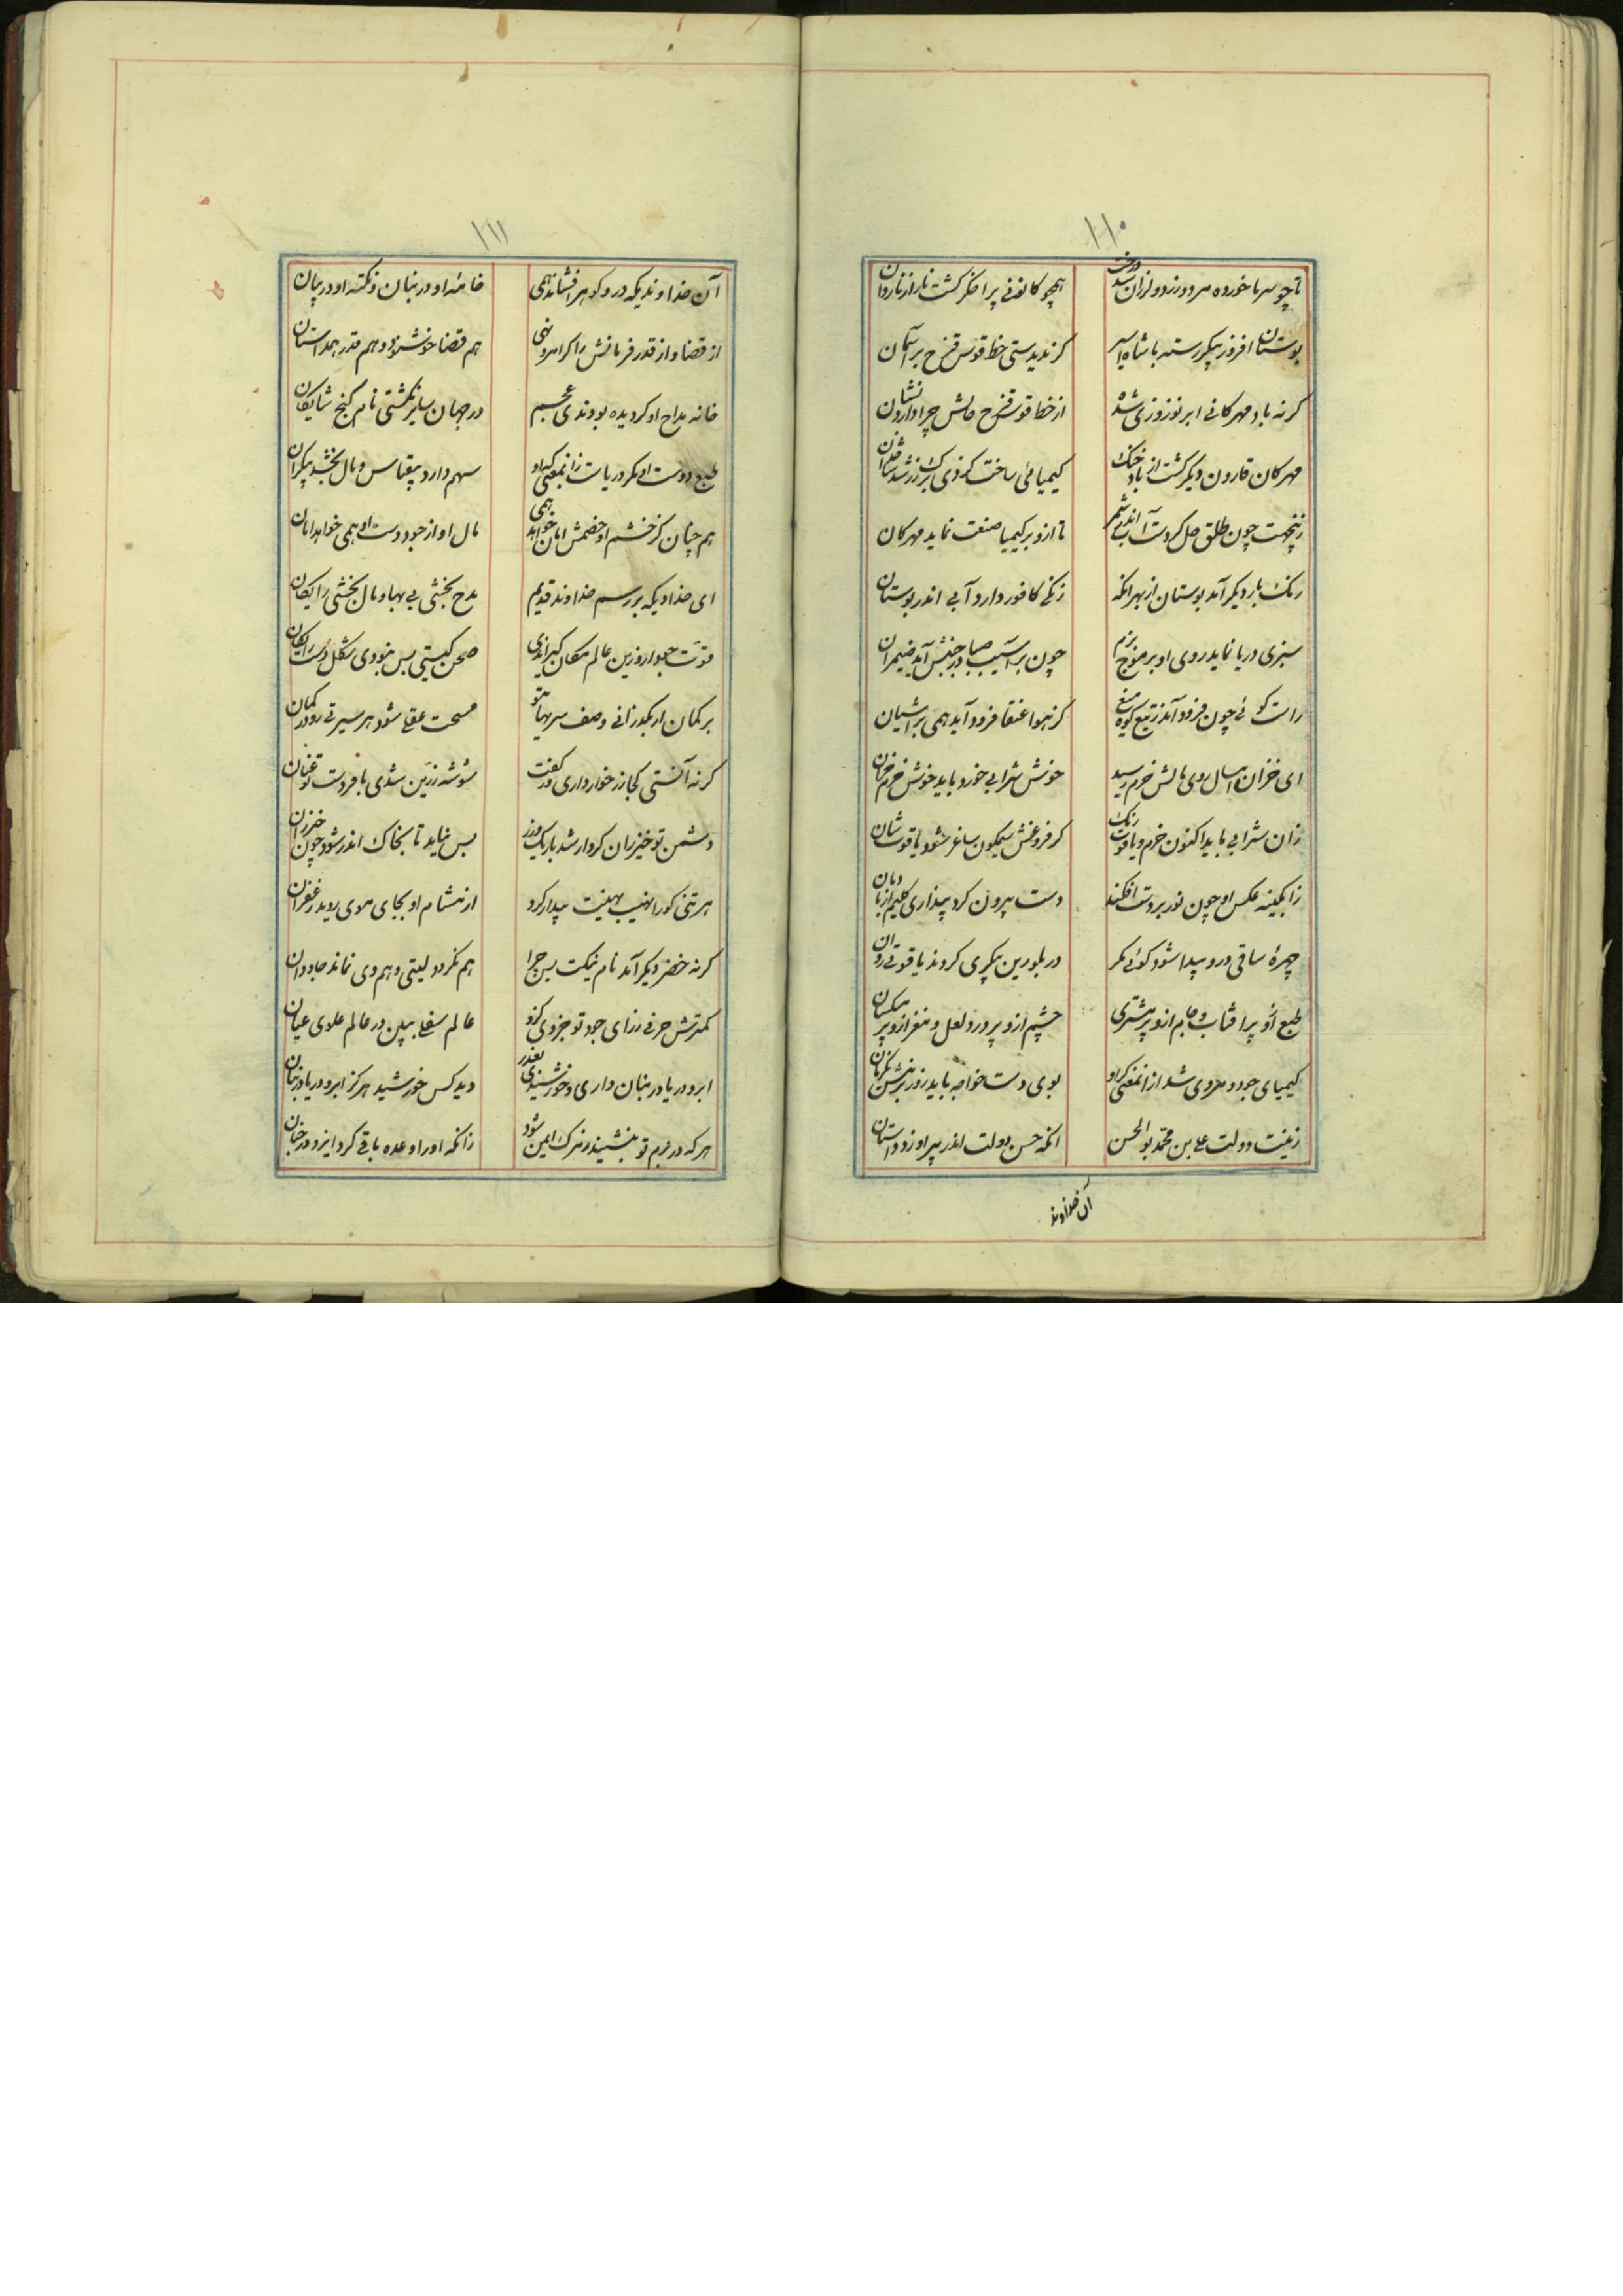 ۱۱۰
تا چو سرما خورده مرد و رز دو لرزان شد درخت
همچو کانونی پر اخکر کشت نار از ناردان
بوستان افروز پیکر رسته با شاه اسپر
کر ندیدستی خط قوس قزح بر آسمان
کر نه باد مهرکانی ابر نوروزی شده
از خط قوس قزح حالش چرا دارد نشان
مهرکان قارون دیکر کشت از باد خنک
کیمیائی ساخت کز وی برک زر شد
چون طلق حل کردست آب اندر شمر
تا ازو بر کیمیا صنعت نماید مهرکان
رنک بار دیکر آمد بوستان از بهر انکه
زنکی کافور دارد آبی اندر بوستان
سبزی دریا نماید روی او بر موج بزم
چون بر آسیب صبا در جنبش آید ضیمران
راست کوئی چون فرود آمد ز تیغ کوه میغ
کز هوا عنقا فرود آید همی بر آشیان
ای خزان امسال روی مالش خرم رسید
خوش شرابی خورد باید خوش خرم خزان
زان شرابی باید اکنون خرم و یاقوت رنک
کز فروغش سیمکون ساغر شود یاقوت شان
ز ابکینه عکس او چون نور بر دست افکند
دست بیرون کرد پنداری کلیم از بادبان
چهرهٔ ساقی درو پیدا شود کوئی مکر
در بلورین پیکری کردند یاقوتی روان
طبع ازو پر افتاب و جام ازو پر مشتری
چشم ازو پر درد و لعل و مغز ازو پر
کیمیای جود و مردی شد از انمعنی کز او
بوی دست خواجه باید زود
زینت دولت علی بن محمد بوالحسن
انکه حسن دولت اندر پیر او زد داستان
آن خداوند
۱۱۱
آن خداوندیکه در و کوهر افشاند همی
خامهٔ او در بنان و نکتهٔ او در بیان
از قضا و از قدر فرمانش را کر امر و نهی
هم قضا خوشنود و هم قدر همداستان
خانه مداح او کر دیده بودندی عجم
در جهان سایر نکشتی نام کنج شایکان
طبع و دست او مکر دریاست زانمعنی که او
سهم دارد بیقیاس و مال بخشد بیکران
هم چنان کز خشم او خصمش امان خواهد همی
مال او از جود دست او همی خواهد امان
ای خداوندیکه بر رسم خداوند قدیم
مدح بخشی بی بها و مال بخشی رایکان
قوتت چو ار وزین عالم مکان کیراندی
صحن کیتی بس نبودی شکل دست را مکان
بر کمان ار بکذرانی وصف سیر سهم تو
مسحت عقلی شود هر سیر تی رود در کمان
کر نه آنستی کجا زر خوار داری در کفت
شوشه زرین شدی با فر دست تو عنان
دشمن تو خیزران کردار شد باریک و زرد
بس نیاید تا بخاک اندر شود چون خیزران
هر تنی کو را نهیب هیبت بیدار کرد
از مشام او بجای موی روید زعفران
کر نه خضر دیکر آمد نام نیکت پس چرا
هم نکردد کیتی و هم وی نماند جاودان
کمترش حرفی ز رای جود تو جزوی کزو
عالم سفلی ببین در عالم علوی عیان
ابر و دریا در بنان داری و خورشیدی بقدر
دید کس خورشید هرکز ابر و دریا در بنان
هر که در بزم تو بنشیند ز مرک ایمن شود
زانکه او را وعده باقی کرد ایزد در جنان